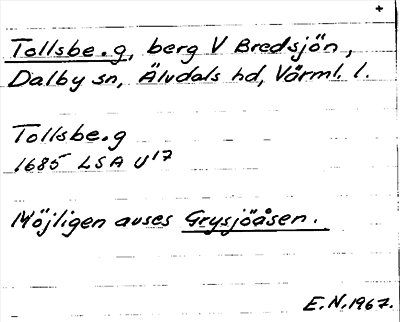 +
Tollsbe.g, berg V Bredsjön,
Dalby sn, Älvdals hd, Värml. l.
Tollsbe.g
1685 LSA U17
Möjligen avses Grysjöåsen.
E.N. 1967.